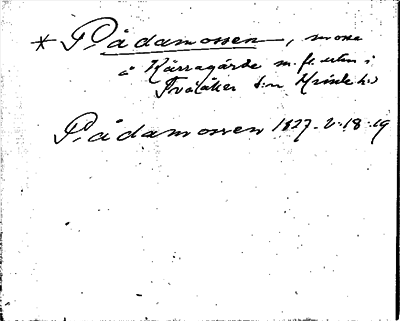 * Rådamossen, mosse
å Kärragärde m. fl. utm i
Tvååker s:n Himle hd
Rådamossen 1827-2-18-19